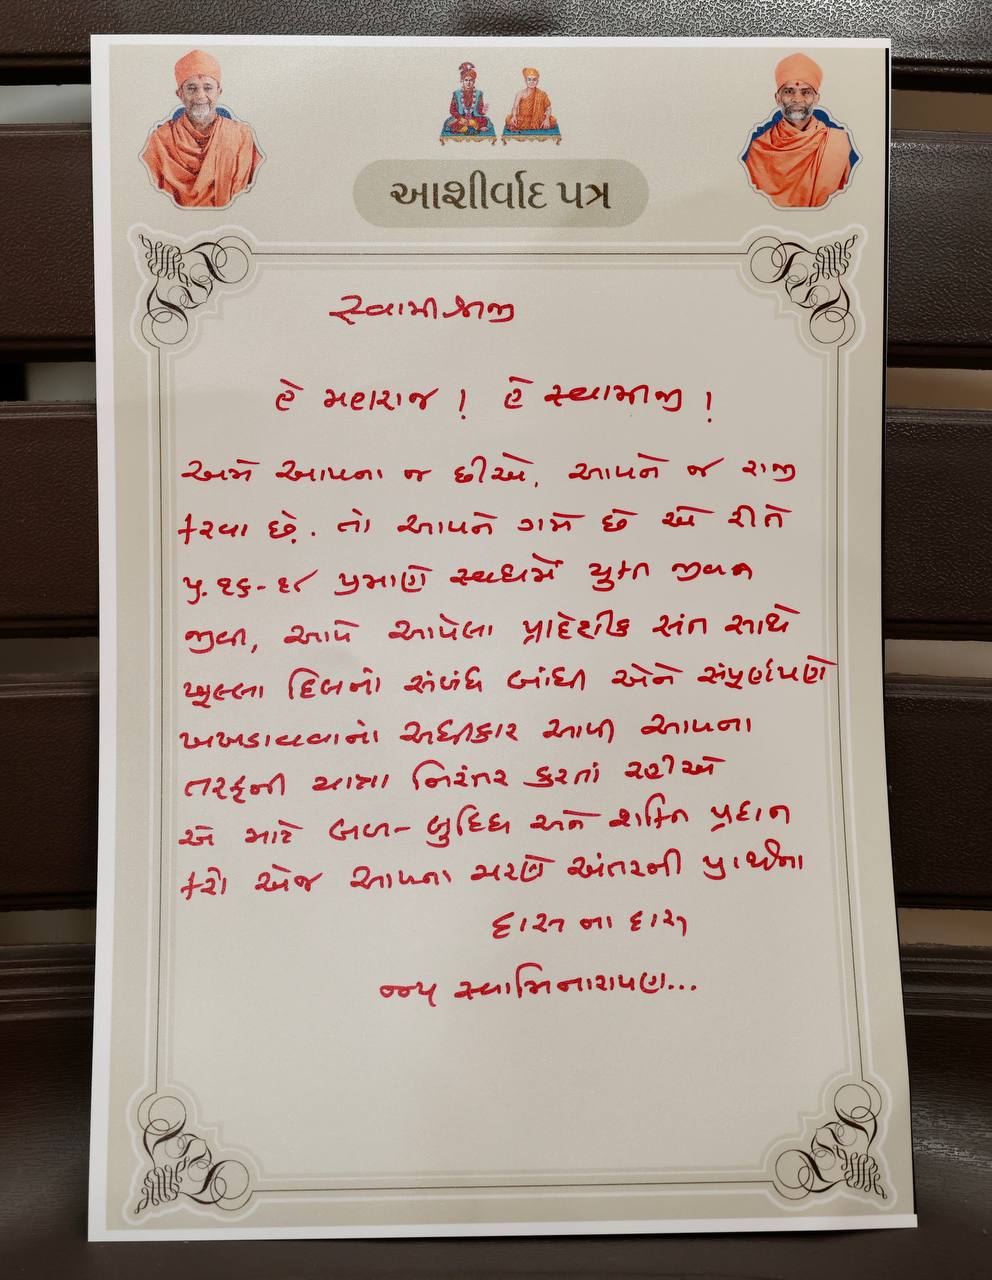 આશીર્વાદ પત્ર
સ્વામીશ્રીજી
હે મહારાજ ! હે સ્વામીજી !
અમે આપના જ છીએ, આપને જ રાજી
કરવા છે. તો આપને ગમે છે એ રીતે
પ્ર. ૧૬-૧૮ પ્રમાણે સ્વધર્મે યુક્ત જીવન
જીવી, આપે આપેલા પ્રાદેશીક સંત સાથે
ખુલ્લા દિલનો સંબંધ બાંધી એને સંપૂર્ણપણે
ખખડાવવાનો અધીકાર આપી આપના
તરફની યાત્રા નિરંતર કરતાં રહીએ
એ માટે બળ-બુધ્ધિ અને શક્તિ પ્રદાન
કરો એજ આપના ચરણે અંતરની પ્રાર્થના
દાસ ના દાસ
જય સ્વામિનારાયણ...